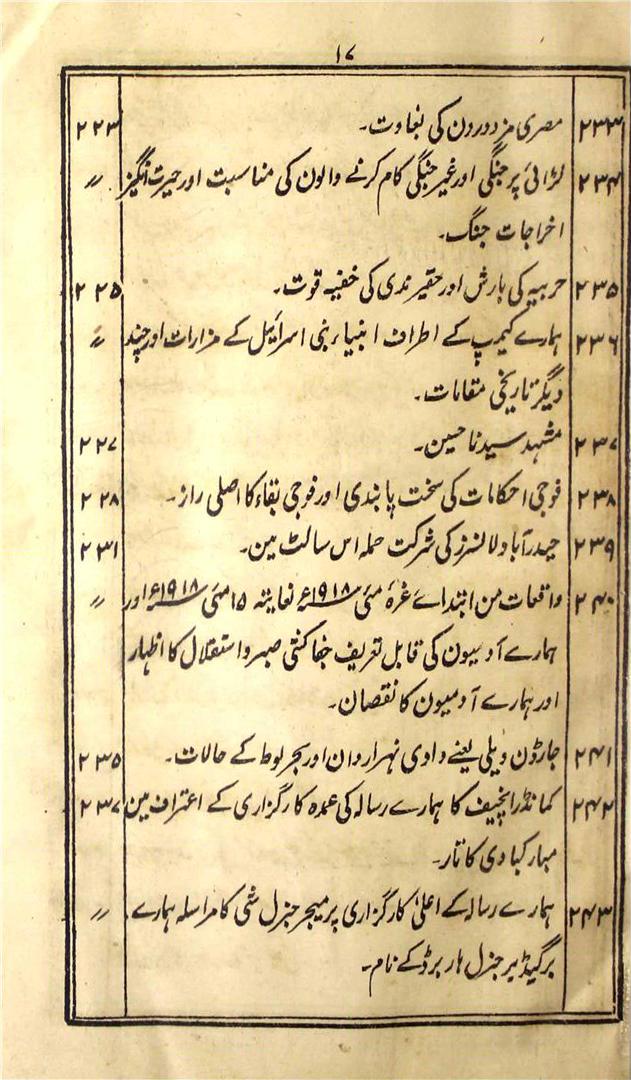 ۱۷
۲۳۳ مصری مزدورون کی بغاوت۔ ۲۲۳
۲۳۴ لڑائی پر جنگی اور غیر جنگی کام کرنے والون کی مناسبت اور حیرت انگیز 〃
اخراجات جنگ۔
۲۳۵ حربیہ کی بارش اور حقیر ندی کی خفیہ قوت۔ ۲۲۵
۲۳۶ ہمارے کیمپ کے اطراف انبیاء بنی اسرائیل کے مزارات اور چند 〃
دیگر تاریخی مقامات۔
۲۳۷ مشہد سیدنا حسین۔ ۲۲۷
۲۳۸ فوجی احکامات کی سخت پابندی اور فوجی بقاء کا اصلی راز۔ ۲۲۸
۲۳۹ حیدرآباد لانسرز کی شرکت حملہ اس سالٹ مین۔ ۲۳۱
۲۴۰ واقعات من ابتداے غرۂ مئی ۱۹۱۸ء لغایتہ ۱۵ مئی ۱۹۱۸ء اور 〃
ہمارے آدمیون کی قابل تعریف جفا کشی صبر و استقلال کا اظہار
اور ہمارے آدمیون کا نقصان۔
۲۴۱ جارڈن ویلی یعنے وادی نہر اردان اور بحر لوط کے حالات۔ ۲۳۵
۲۴۲ کمانڈر انچیف کا ہمارے رسالہ کی عمدہ کارگزاری کے اعتراف مین ۲۳۷
مبارکبادی کا تار۔
۲۴۳ ہمارے رسالہ کے اعلیٰ کارگزاری پر میجر جنرل شی کا مراسلہ ہمارے 〃
برگیڈیر جنرل ہاربرڈ کے نام۔